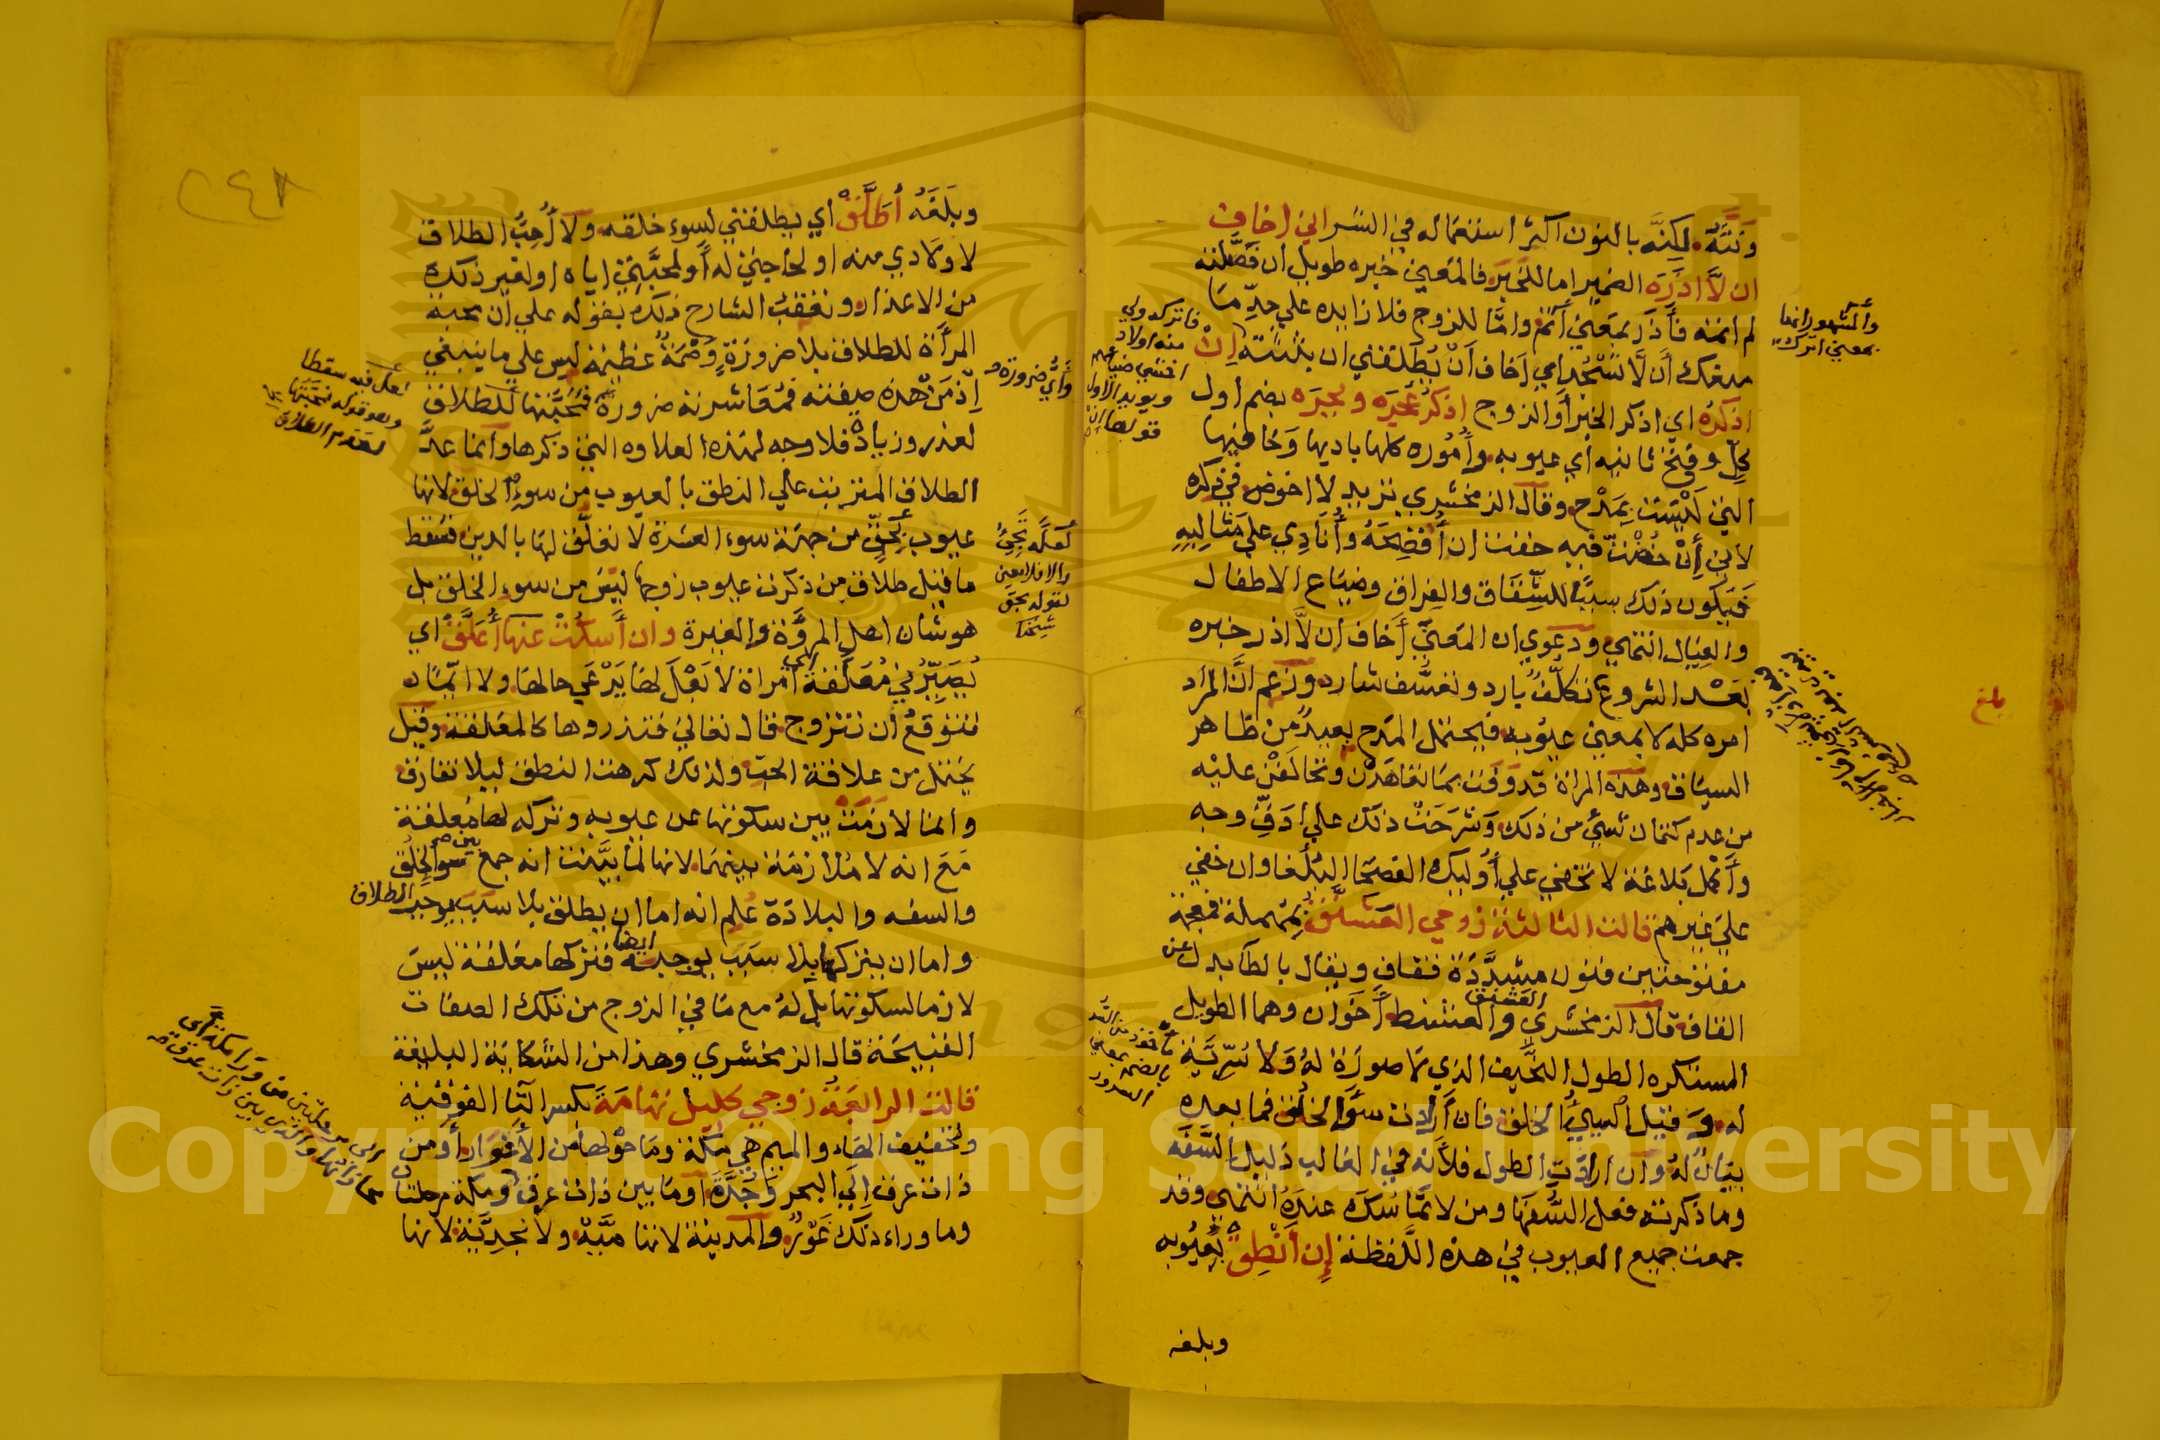 ونثه لكنه بالنون اكثر استعماله في الشر اني اخاف
ان لا اذره الضمير اما للخبر فالمعني خبره طويل ان فصلته
لم اتمه فأذر بمعني أتم واما للزوج فلا زايده علي حد ما
منعك أن لا تسجد اي اخاف أن يطلقني ان بثثته إن
اذكره اي اذكر الخبر أو الزوج اذكر عجره وبجره بضم اول
كل وفتح ثانيه أي عيوبه وأموره كلها باديها وخافيها
التي ليست بمدح وقال الزمخشري يريد لا اخوض في ذكره
لأني إن خضت فيه خفت ان أفضحه وأنادي علي مثالبه
فيكون ذلك سببا للشقاق والفراق وضياع الاطفال
والعيال انتهي ودعوي ان المعني أخاف ان لا اذر خبره
بعد الشروع تكلف بارد وتعسف شارد وزعم ان المراد
امره كله لا بمعني عيوبه فيحتمل المدح بعيد من ظاهر
السياق وهذه المراة قد وفت بما تعاهدن وتحالفن عليه
من عدم كتمان شئ من ذلك وشرحت ذلك علي أدق وجه
وأكمل بلاغة لا تخفي علي أوليك الفصحا البلغا وان خفي
علي غيرهم قالت الثالثة زوجي العشنق بمهملة فمعجمة
مفتوحتين فنون مشددة فقاف ويقال بالطا بدل عن
القاف قال الزمخشري العشنق والعشنط أخوان وهما الطويل
المستكره الطول النحيف الذي لا صورة له ولا سرية
له وقيل السئ الخلق فان أرادت سوأ الخلق فما بعده
بيان له وان ارادت الطول فلأنه في الغالب دليل السفه
وما ذكرته فعل السفها ومن لا تماسك عنده انتهي وقد
جمعت جميع العيوب في هذه اللفظة إن أنطق بعيوبه
وبلغه
والمشهور انها
بمعني اترك
فاتركه ولي
منه اولاد
اخشي ضياعهم
ويويد الاول
قولها ان
بلغ
وبلغه أطلق أي يطلقني لسوء خلقه ولا أحب الطلاق
لاولادي منه او لحاجتي له أو لمحبتي اياه او لغير ذلك
من الاعذار وتعقب الشارح ذلك بقوله علي ان محبة
المرأة للطلاق بلا ضرورة وصمة عظيمة ليس علي ما ينبغي
إذ من هذه صفته فمعاشرته ضرورة فمحبتها للطلاق
لعذر وزيادة فلا وجه لهذه العلاوه التي ذكرها وانما عد
الطلاق المترتب علي النطق بالعيوب من سوء الخلق لانها
عيوب بحق من جهة سوء العشرة لا تعلق لها بالدين فسقط
ما قيل طلاق من ذكرت عيوب زوجها ليس من سوء الخلق بل
هو شان اهل المروة والغيرة وان أسكت عنها أعلق اي
يصيرني معلقة امراة لا بعل لها يرعي حالها ولا ايما
فتتوقع أن تتزوج قال تعالي فتذروها كالمعلقة وقيل
يحتمل من علاقة الحب ولذلك كرهت النطق ليلا تفارق
وانما لازمت بين سكوتها عن عيوبه وتركه لها معلقة
مع انه لا ملازمة بينهما لانها لما بينت انه جمع بين سوأ الخلق
والسفه والبلادة علم انه اما ان يطلق بلا سبب يوجب الطلاق
واما ان يتركها بلا سبب يوجبه ايضا فتركها معلقة ليس
لازما لسكوتها بل له مع ما في الزوج من تلك الصفات
القبيحة قال الزمخشري وهذا من الشكاية البليغة
قالت الرابعة زوجي كليل تهامة بكسر التا الفوقية
وتخفيف الهاء والميم هي مكة وما حولها من الأغوار أو من
ذات عرق إلي البحر وجدة أو ما بين ذات عرق ومكة مرحلتان
وما وراء ذلك غور والمدينة لا تهامية ولا نجدية لانها
وأي ضرورة
لعله فيه سقطا
وهو قوله فمحبتها
لعدم الطلاق
لعله تجئ
شيخنا